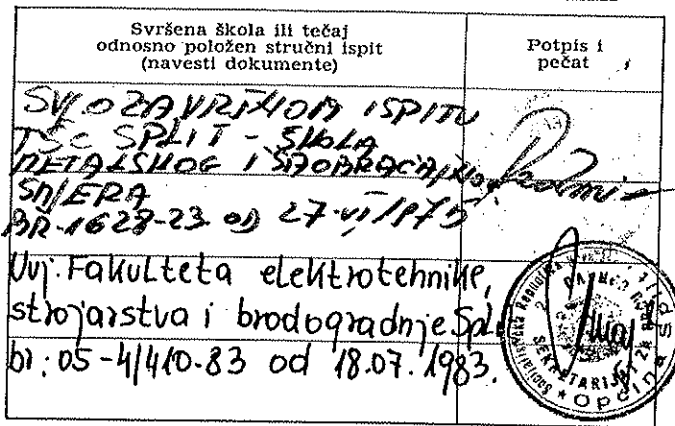 Svršena škola ili tečaj
odnosno položen stručni ispit
(navesti dokumente)
Potpis i
pečat
SVJ O ZAVRŠNOM ISPITU
TŠC SPLIT - ŠKOLA
METALSKOG I SAOBRAĆAJNOG
SMJERA
BR. 1628-23 OD 27-VI/1975
Uvj. Fakulteta elektrotehnike,
strojarstva i brodogradnje Split
br: 05-4/410-83 od 18.07.1983.
Socijalistička Republika
SEKRETARIJAT ZA
Općina